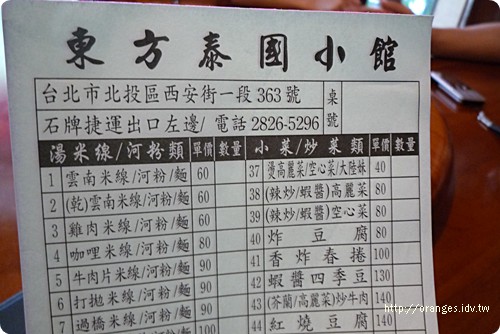 東方泰國小館
台北市北投區西安街一段363號
桌號
石牌捷運出口左邊/電話2826-5296
湯米線/河粉類 單價 數量 小菜/炒菜類 單價 數量
1 雲南米線/河粉/麵 60 37 燙高麗菜/空心菜/大陸妹 40
2 (乾)雲南米線/河粉/麵 60 38 (辣炒/蝦醬)高麗菜 80
3 雞肉米線/河粉/麵 60 39 (辣炒/蝦醬)空心菜 80
4 咖哩米線/河粉/麵 80 40 炸豆腐 80
5 牛肉片米線/河粉/麵 90 41 香炸春捲 100
6 打拋米線/河粉/麵 90 42 蝦醬四季豆 130
7 過橋米線/河粉/麵 43 (芥蘭/高麗菜)炒牛肉 140
44 紅燒豆腐 140
http://oranges.idv.tw